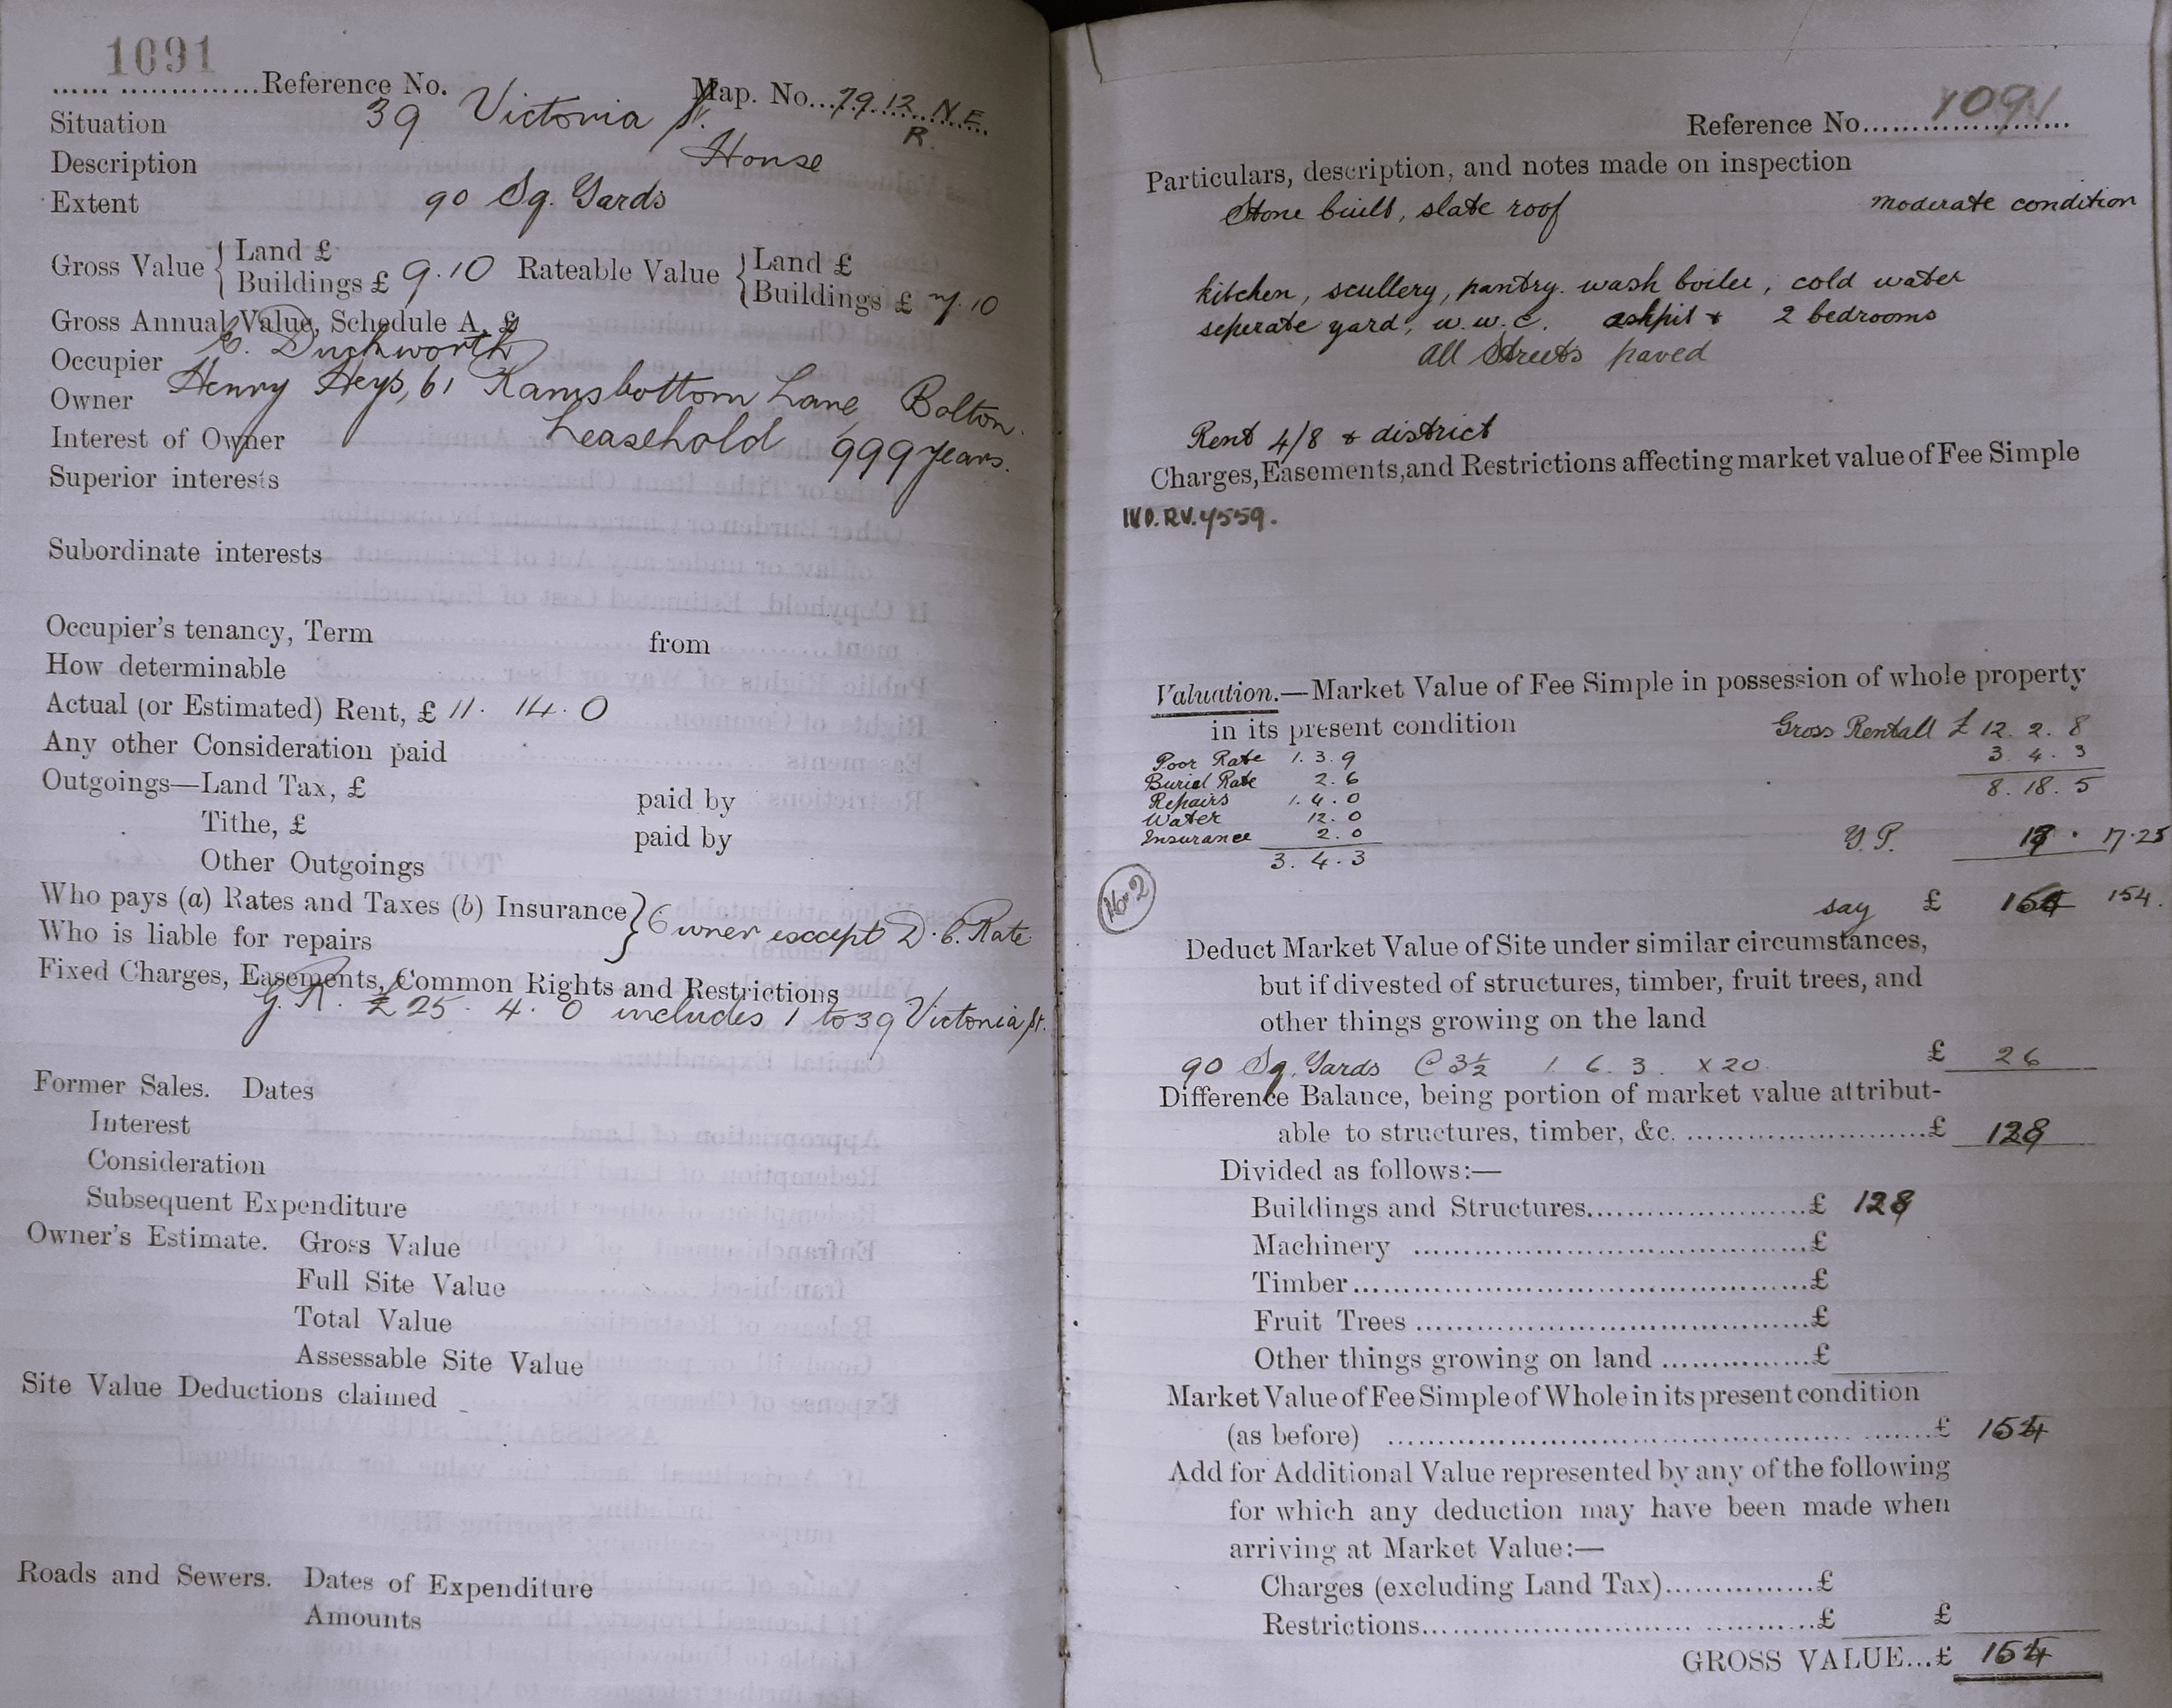 1091
...... ..............Reference No. Map. No...79.12.N.E
R.
Situation 39 Victoria St.
Description House
Extent 90 Sq. Yards
Gross Value { Land £
Buildings £ 9.10 Rateable Value { Land £
Buildings £ 7.10
Gross Annual Value, Schedule A, £
Occupier E. Duckworth
Owner Henry Heys, 61 Ramsbottom Lane, Bolton.
Interest of Owner Leasehold 999 years.
Superior interests
Subordinate interests
Occupier's tenancy, Term from
How determinable
Actual (or Estimated) Rent, £ 11. 14. 0
Any other Consideration paid
Outgoings—Land Tax, £ paid by
Tithe, £ paid by
Other Outgoings
Who pays (a) Rates and Taxes (b) Insurance }
Who is liable for repairs } Owner except D.C. Rate
Fixed Charges, Easements, Common Rights and Restrictions
G. R. £25. 4. 0 includes 1 to 39 Victoria St.
Former Sales. Dates
Interest
Consideration
Subsequent Expenditure
Owner's Estimate. Gross Value
Full Site Value
Total Value
Assessable Site Value
Site Value Deductions claimed
Roads and Sewers. Dates of Expenditure
Amounts
Reference No. 1091
Particulars, description, and notes made on inspection
Stone built, slate roof moderate condition
kitchen, scullery, pantry. wash boiler, cold water
seperate yard, w.w.c. ashpit & 2 bedrooms
All Streets paved
Rent 4/8 & district
Charges, Easements, and Restrictions affecting market value of Fee Simple
IVD.RV.4559.
Valuation.—Market Value of Fee Simple in possession of whole property
in its present condition Gross Rentall £ 12. 2. 8
Poor Rate 1. 3. 9 3. 4. 3
Burial Rate 2. 6 8. 18. 5
Repairs 1. 4. 0
Water 12. 0
Insurance 2. 0 Y.P. 17.25
3. 4. 3
No 2
say £ 154.
Deduct Market Value of Site under similar circumstances,
but if divested of structures, timber, fruit trees, and
other things growing on the land
90 Sq. Yards @ 3½ 1. 6. 3. x 20 £ 26
Difference Balance, being portion of market value attribut-
able to structures, timber, &c. ........................£ 128
Divided as follows:—
Buildings and Structures......................£ 128
Machinery ........................................£
Timber..............................................£
Fruit Trees ........................................£
Other things growing on land ...............£
Market Value of Fee Simple of Whole in its present condition
(as before) ........................................................£ 154
Add for Additional Value represented by any of the following
for which any deduction may have been made when
arriving at Market Value:—
Charges (excluding Land Tax)...............£
Restrictions.......................................£ £
GROSS VALUE...£ 154